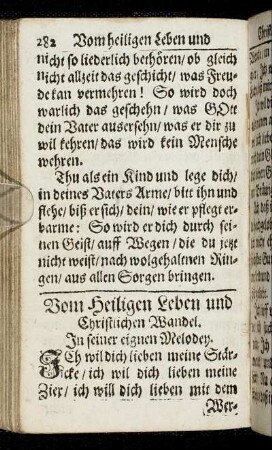 282 Vom heiligen Leben und
nicht so liederlich bethören/ ob gleich
nicht allzeit das geschicht/ was Freu-
de kan vermehren! So wird doch
warlich das geschehn/ was GOtt
dein Vater ausersehn/ was er dir zu
wil kehren/ das wird kein Mensche
wehren.
Thu als ein Kind und lege dich/
in deines Vaters Arme/ bitt ihn und
flehe/ biß er sich/ dein/ wie er pflegt er-
barme: So wird er dich durch sei-
nen Geist/ auff Wegen/ die du jetzt
nicht weist/ nach wolgehaltnen Rin-
gen/ aus allen Sorgen bringen.
Vom Heiligen Leben und
Christlichen Wandel.
In seiner eignen Melodey.
ICh wil dich lieben meine Stär-
cke/ ich wil dich lieben meine
Zier/ ich will dich lieben mit dem
Wer-